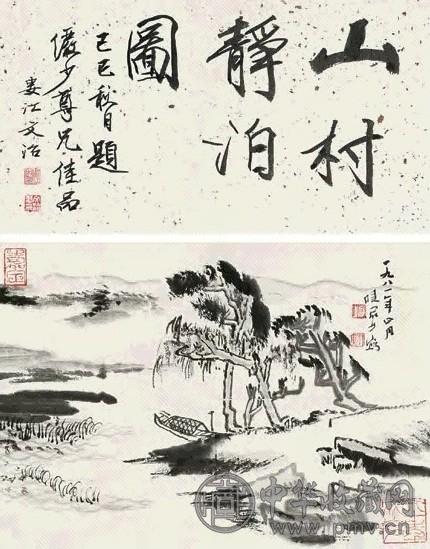 山村
靜泊
圖
己巳秋日題
儼少尊兄佳品
婁江文治
一九八一年四月
陸儼少寫
中华收藏网
www.pmv.cn